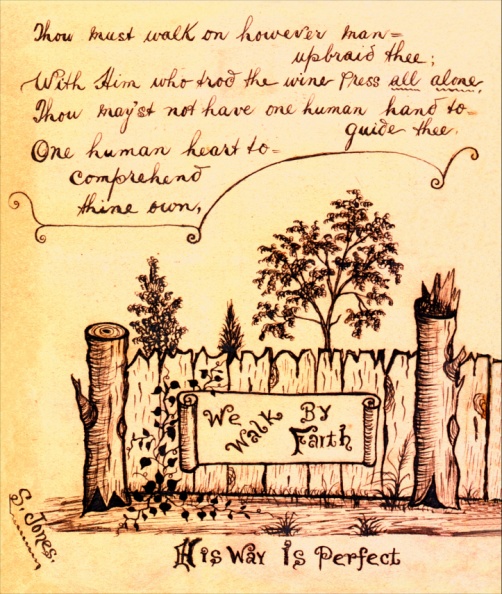 Thou must walk on however man=
upbraid thee;
With Him who trod the wine press all alone,
Thou may'st not have one human hand to=
guide thee.
One human heart to=
comprehend
thine own,
We Walk By Faith
S. Jones.
His Way Is Perfect